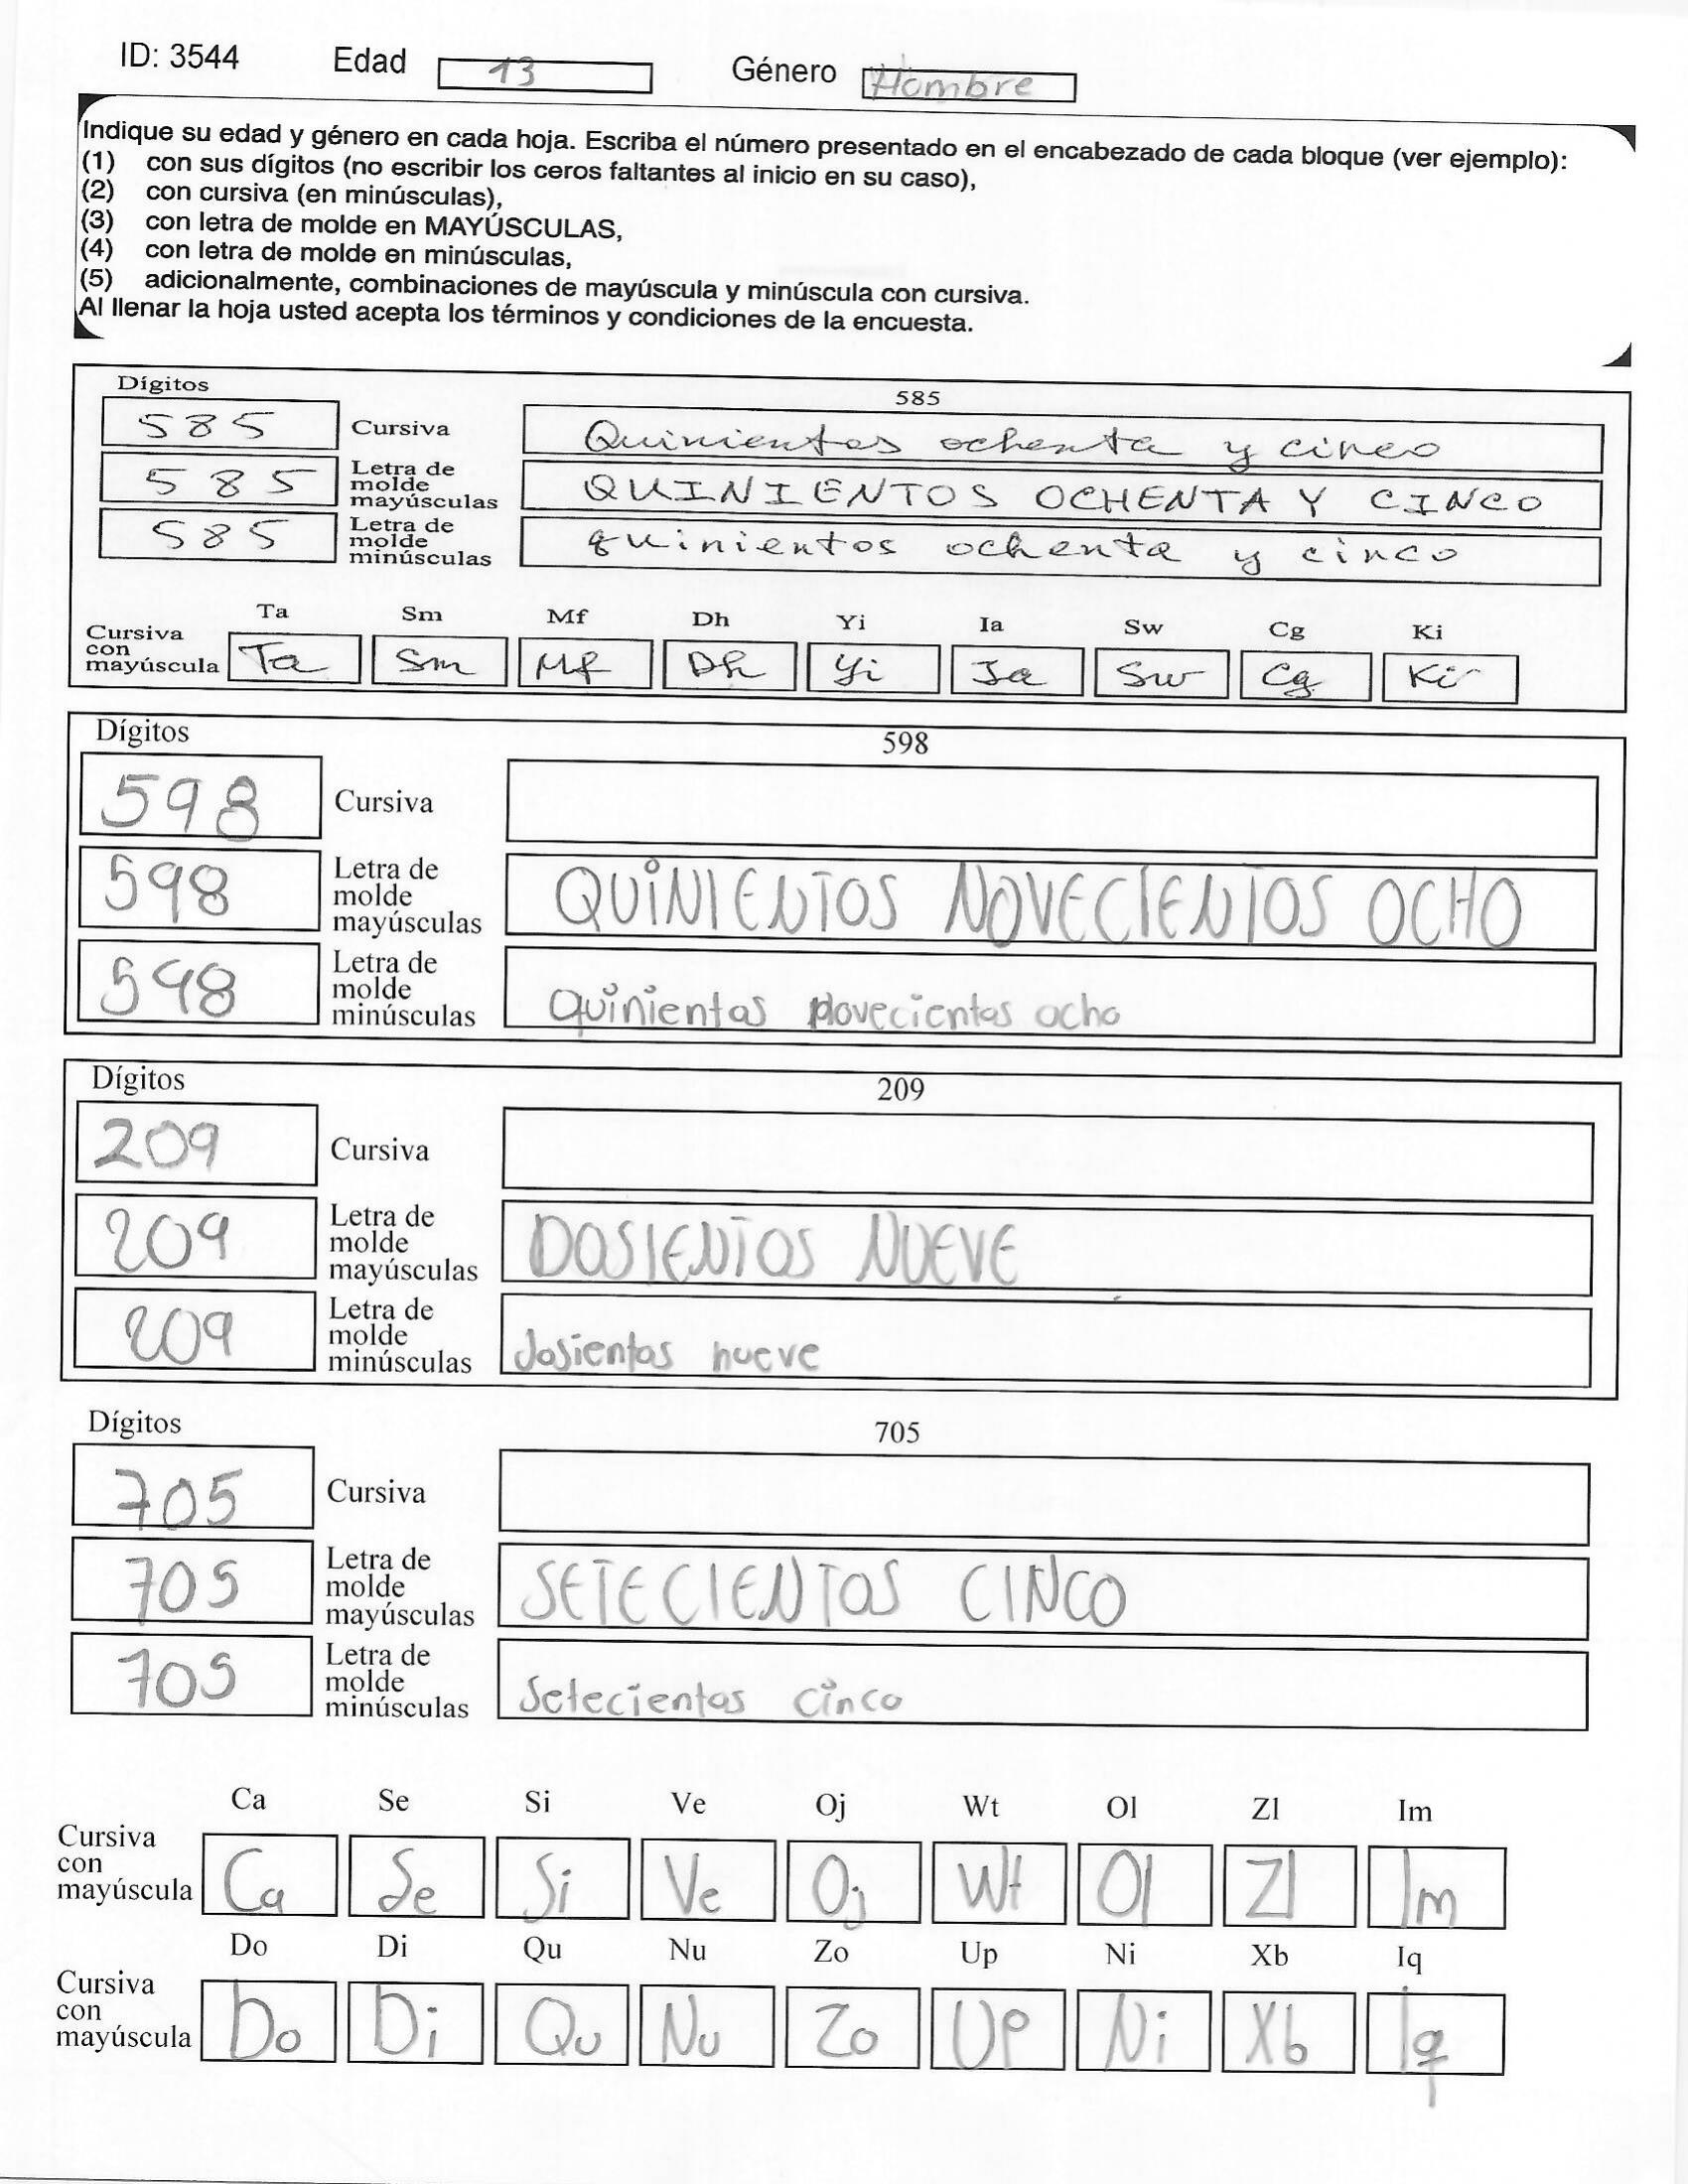 ID: 3544 Edad 13 Género Hombre
Indique su edad y género en cada hoja. Escriba el número presentado en el encabezado de cada bloque (ver ejemplo):
(1) con sus dígitos (no escribir los ceros faltantes al inicio en su caso),
(2) con cursiva (en minúsculas),
(3) con letra de molde en MAYÚSCULAS,
(4) con letra de molde en minúsculas,
(5) adicionalmente, combinaciones de mayúscula y minúscula con cursiva.
Al llenar la hoja usted acepta los términos y condiciones de la encuesta.
Dígitos 585
585 Cursiva Quinientos ochenta y cinco
585 Letra de molde mayúsculas QUINIENTOS OCHENTA Y CINCO
585 Letra de molde minúsculas quinientos ochenta y cinco
Ta Sm Mf Dh Yi Ia Sw Cg Ki
Cursiva con mayúscula Ta Sm Mf Dh Yi Ia Sw Cg Ki
Dígitos 598
598 Cursiva
598 Letra de molde mayúsculas QUINIENTOS NOVECIENTOS OCHO
598 Letra de molde minúsculas Quinientos novecientos ocho
Dígitos 209
209 Cursiva
209 Letra de molde mayúsculas DOSIENTOS NUEVE
209 Letra de molde minúsculas dosientos nueve
Dígitos 705
705 Cursiva
705 Letra de molde mayúsculas SETECIENTOS CINCO
705 Letra de molde minúsculas Setecientos cinco
Ca Se Si Ve Oj Wt Ol Zl Im
Cursiva con mayúscula Ca Se Si Ve Oj Wt Ol Zl Im
Do Di Qu Nu Zo Up Ni Xb Iq
Cursiva con mayúscula Do Di Qu Nu Zo Up Ni Xb Iq